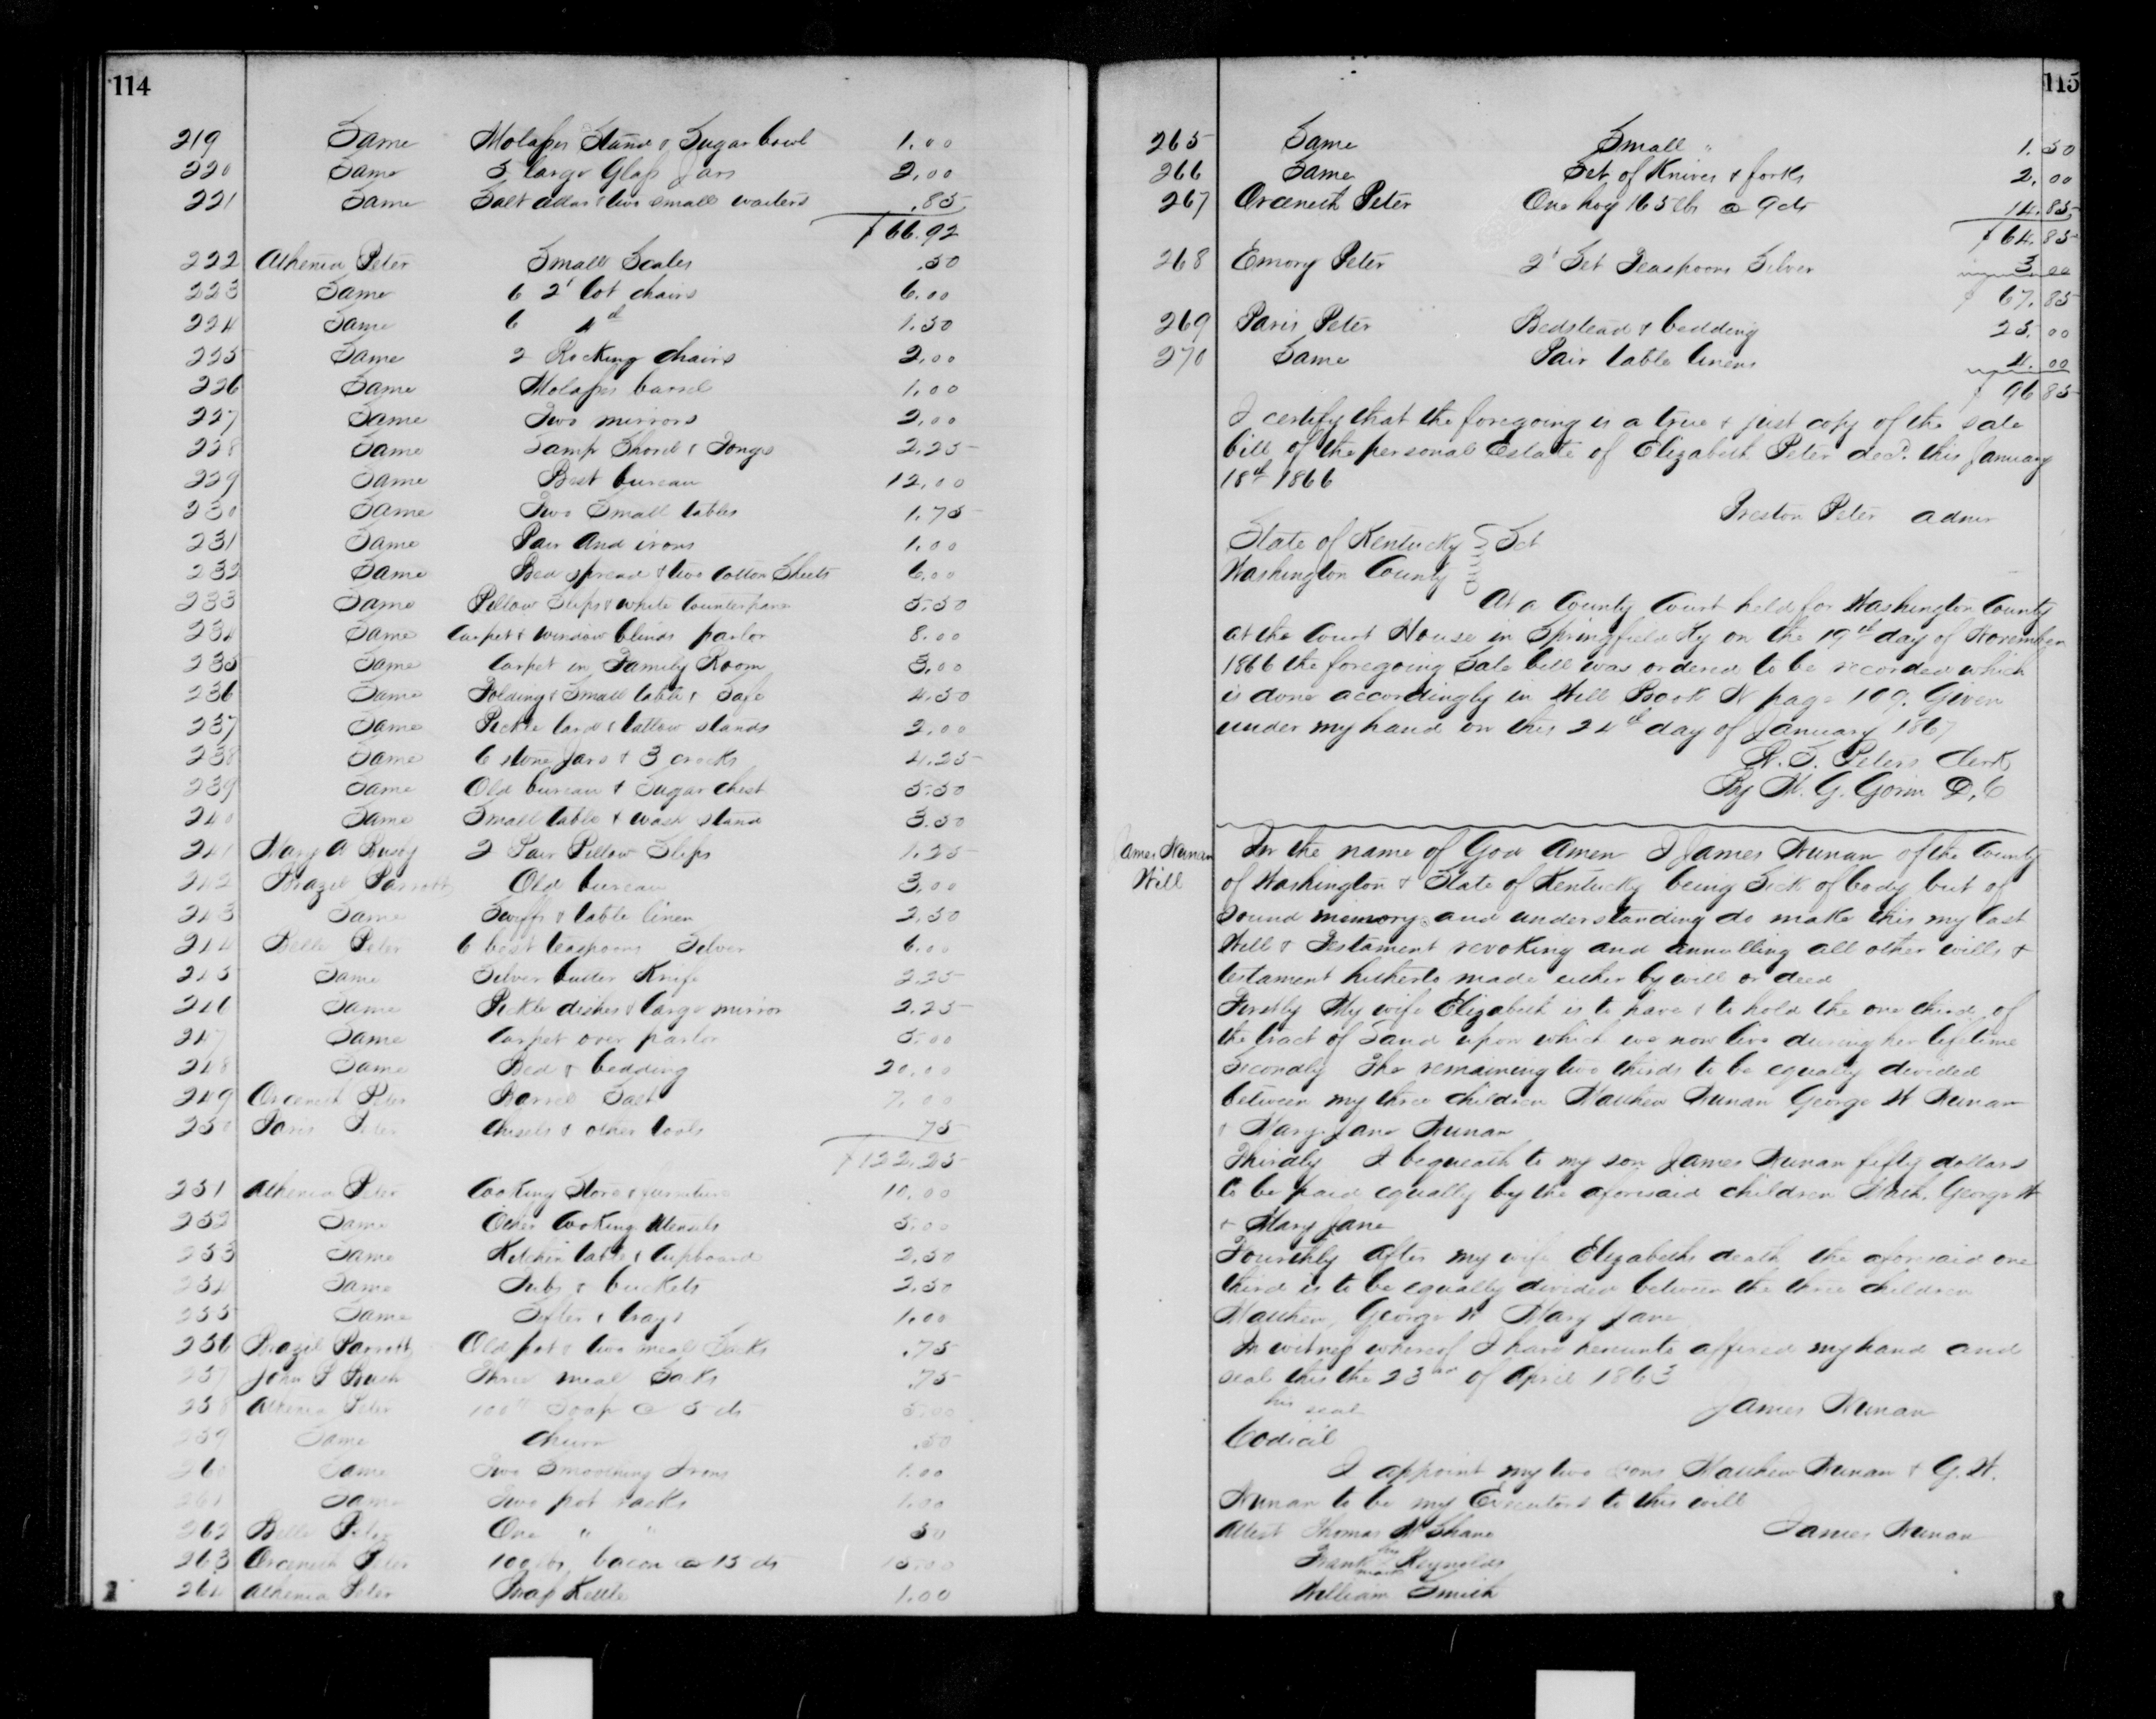 114
219 Same Molasses Stand & Sugar bowl 1.00
220 Same 3 large Glass Jars 2.00
221 Same Salt cellar & two small waiters .85
$66.92
222 Athenia Peter Small Scales .50
223 Same 6 2d lot chairs 6.00
224 Same 6 4th 1.50
225 Same 2 Rocking chairs 2.00
226 Same Molasses barrel 1.00
227 Same Two mirrors 2.00
228 Same Lamp Shovel & Tongs 2.25
229 Same Best bureau 12.00
230 Same Two Small tables 1.75
231 Same Pair And irons 1.00
232 Same Bed spread & two Cotton Sheets 6.00
233 Same Pillow Slips & white Counterpane 5.50
234 Same Carpet & window blinds parlor 8.00
235 Same Carpet in Family Room 3.00
236 Same Folding & Small table & Safe 4.50
237 Same Pickle lard & tallow stands 2.00
238 Same 6 stone Jars & 3 crocks 4.25
239 Same Old bureau & Sugar chest 5.50
240 Same Small table & wash stand 3.50
241 Mary A Busby 2 Pair Pillow Slips 1.25
242 Brazil Parrott Old bureau 3.00
243 Same & table linen 2.50
244 Belle Peter 6 best teaspoons Silver 6.00
245 Same Silver butter Knife 2.25
246 Same Pickle dishes & large mirror 2.25
247 Same Carpet over parlor 5.00
248 Same Bed & bedding 20.00
249 Orceneth Peter Barrel Salt 7.00
250 Paris Peter Chisels & other tools 75
$122.25
251 Athenia Peter Cooking Stove & furniture 10.00
252 Same Other Cooking Utensils 5.00
253 Same Kitchen table & Cupboard 2.50
254 Same Tubs & buckets 2.50
255 Same Sifter & trays 1.00
256 Brazil Parrott Old pot & two meal Sacks .75
257 John P Bush Three meal Sacks .75
258 Athenia Peter 100 lb Soap @ 5 cts 5.00
259 Same Churn .50
260 Same Two Smoothing Irons 1.00
261 Same Two pot racks 1.00
262 Belle Peter One " " 50
263 Orceneth Peter 100 lbs bacon @ 15 cts 15.00
264 Athenia Peter Kettle 1.00
115
265 Same Small " 1.50
266 Same Set of Knives & forks 2.00
267 Orceneth Peter One hog 165 lbs @ 9 cts 14.85
$64.85
268 Emory Peter 2d Set Teaspoons Silver 3.00
$67.85
269 Paris Peter Bedstead & bedding 25.00
270 Same Pair table linens 4.00
$96.85
I certify that the foregoing is a true & just copy of the sale
bill of the personal Estate of Elizabeth Peter decd. this January
18th 1866
Preston Peter admr
State of Kentucky } Sct
Washington County
At a County Court held for Washington County
at the Court House in Springfield Ky on the 19th day of November
1866 the foregoing Sale bill was ordered to be recorded which
is done accordingly in Will Book N page 109. Given
under my hand on this 24th day of January 1867
Peters Clerk
By W. G. Gorin D.C
James Nunan
Will
In the name of God Amen I James Nunan of the County
of Washington & State of Kentucky being Sick of body but of
Sound memory and understanding do make this my last
Will & Testament revoking and annulling all other wills &
testament hitherto made either by will or deed
Firstly My wife Elizabeth is to have & to hold the one third of
the tract of Land upon which we now live during her lifetime
Secondly The remaining two thirds to be equally divided
between my three children Matthew Nunan George W Nunan
& Mary Jane Nunan
Thirdly I bequeath to my son James Nunan fifty dollars
to be paid equally by the aforesaid children Math. George W
& Mary Jane
Fourthly after my wife Elizabeths death the aforesaid one
third is to be equally divided between the three children
Matthew, George W Mary Jane
In witness whereof I have hereunto affixed my hand and
seal this the 23rd of April 1863
his seal James Nunan
Codicil
I appoint my two sons Matthew Nunan & G. W.
Nunan to be my Executors to this will
Attest Thomas McShane James Nunan
Frank his mark Reynolds
William Smith